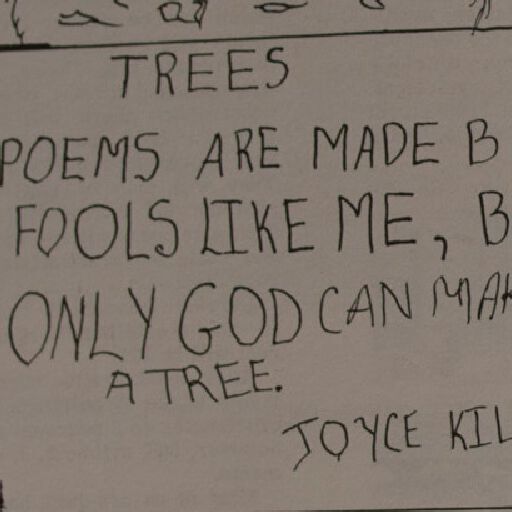 TREES
POEMS ARE MADE B
FOOLS LIKE ME, B
ONLY GOD CAN MAK
A TREE.
JOYCE KIL